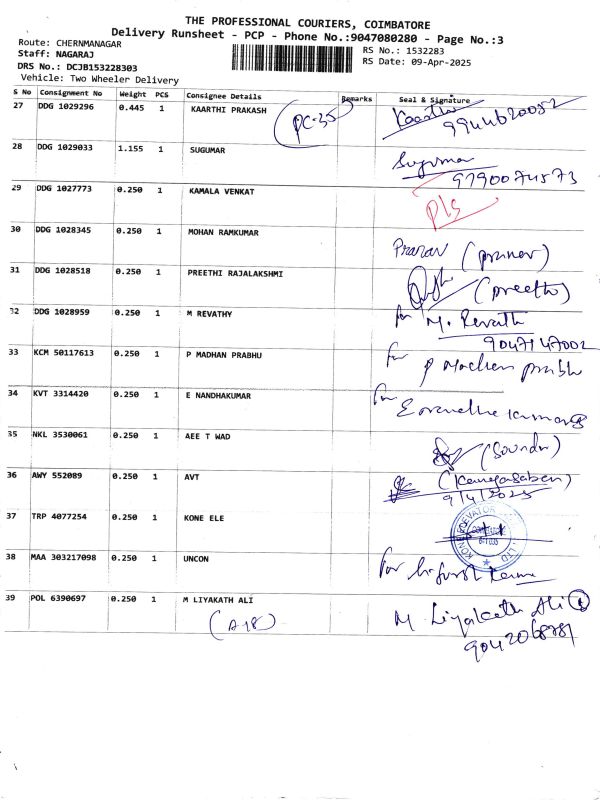 THE PROFESSIONAL COURIERS, COIMBATORE
Delivery Runsheet - PCP - Phone No.:9047080280 - Page No.:3
Route: CHERNMANAGAR
Staff: NAGARAJ
DRS No.: DCJB153228303
Vehicle: Two Wheeler Delivery
RS No.: 1532283
RS Date: 09-Apr-2025
S No Consignment No Weight PCS Consignee Details Remarks Seal & Signature
27 DDG 1029296 0.445 1 KAARTHI PRAKASH PC-35 Kaarthi
9944620052
28 DDG 1029033 1.155 1 SUGUMAR Sugumar
9790074573
29 DDG 1027773 0.250 1 KAMALA VENKAT Pls
30 DDG 1028345 0.250 1 MOHAN RAMKUMAR Pranav (pranav)
31 DDG 1028518 0.250 1 PREETHI RAJALAKSHMI (preethi)
32 DDG 1028959 0.250 1 M REVATHY for M. Revath
9047147002
33 KCM 50117613 0.250 1 P MADHAN PRABHU for P Madhan prabhu
34 KVT 3314420 0.250 1 E NANDHAKUMAR for E
35 NKL 3530061 0.250 1 AEE T WAD (Soundr)
36 AWY 552089 0.250 1 AVT (Kanagasaben)
9/4/2025
37 TRP 4077254 0.250 1 KONE ELE
38 MAA 303217098 0.250 1 UNCON For
39 POL 6390697 0.250 1 M LIYAKATH ALI M. Liyakath Ali
(A18) 9042068781